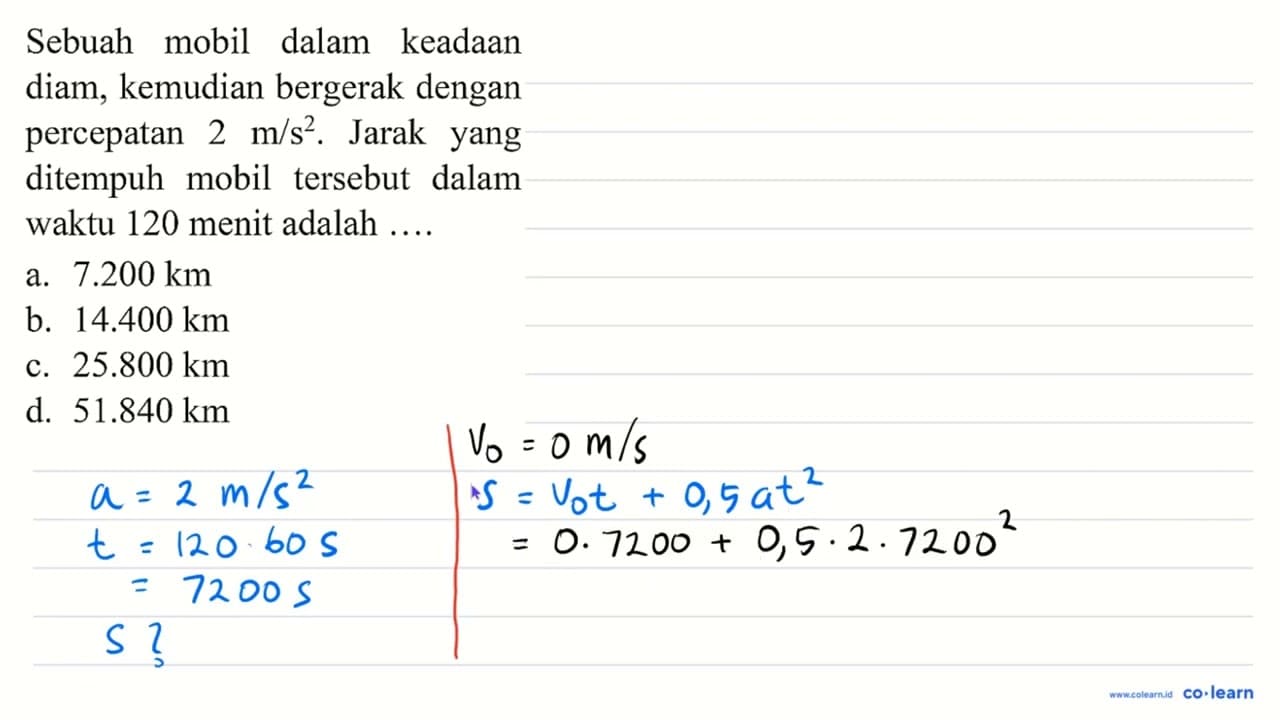 Sebuah mobil dalam keadaan
diam, kemudian bergerak dengan
percepatan 2 m/s². Jarak yang
ditempuh mobil tersebut dalam
waktu 120 menit adalah ....
a. 7.200 km
b. 14.400 km
c. 25.800 km
d. 51.840 km
a = 2 m/s²
t = 120.60 s
= 7200 s
s ?
V₀ = 0 m/s
s = V₀t + 0,5 at²
= 0. 7200 + 0,5 . 2 . 7200²
www.colearn.id co·learn